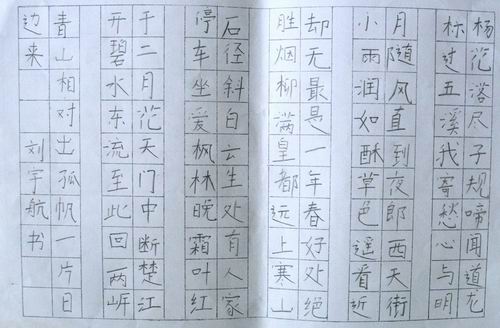 杨花落尽子规啼闻道龙
标过五溪我寄愁心与明
月随风直到夜郎西天街
小雨润如酥草色遥看近
却无最是一年春好处绝
胜烟柳满皇都远上寒山
石径斜白云生处有人家
停车坐爱枫林晚霜叶红
于二月花天门中断楚江
开碧水东流至此回两岸
青山相对出孤帆一片日
边来 刘宇航书